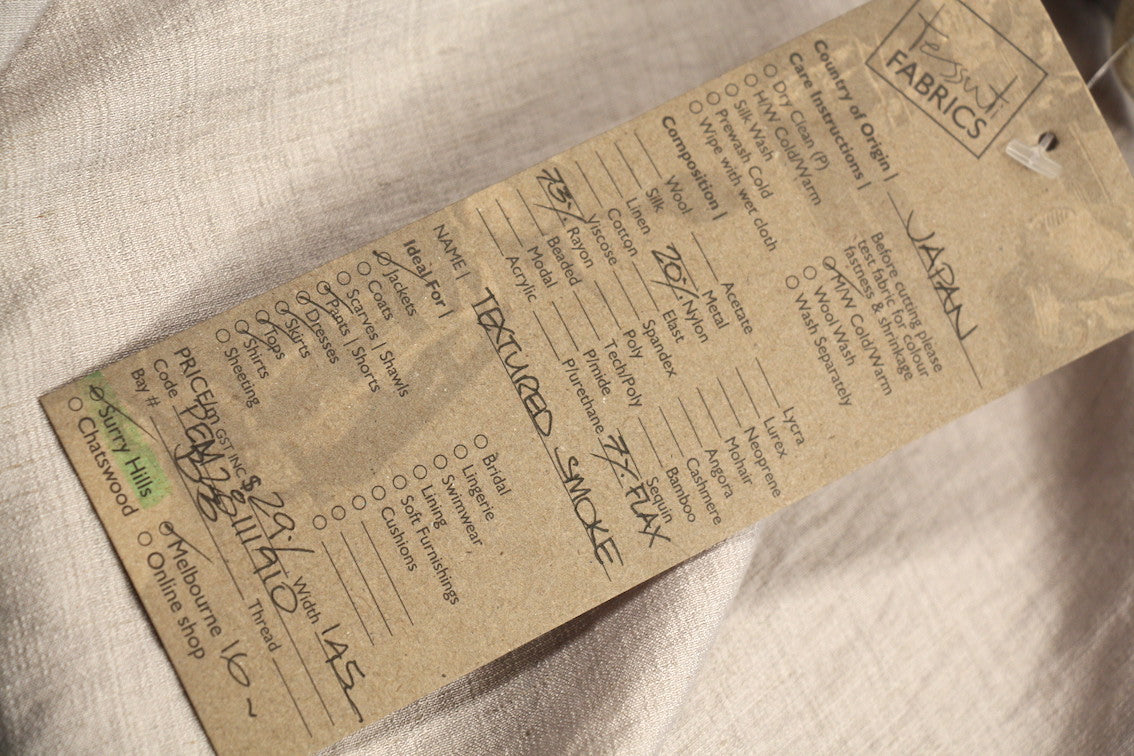 Tessuti
FABRICS
Country of Origin | JAPAN
Care Instructions |
Dry Clean (P)
H/W Cold/Warm
Silk Wash
Prewash Cold
Wipe with wet cloth
Before cutting please
test fabric for colour
fastness & shrinkage
M/W Cold/Warm
Wool Wash
Wash Separately
Composition |
Wool
Silk
Linen
Cotton
Viscose
73% Rayon
Beaded
Modal
Acrylic
Acetate
Metal
20% Nylon
Elast
Spandex
Poly
Tech/Poly
P/mide
P/urethane
Lycra
Lurex
Neoprene
Mohair
Angora
Cashmere
Bamboo
Sequin
7% FLAX
NAME | TEXTURED SMOKE
Ideal For |
Jackets
Coats
Scarves | Shawls
Pants | Shorts
Dresses
Skirts
Tops
Shirts
Sheeting
Bridal
Lingerie
Swimwear
Lining
Soft Furnishings
Cushions
PRICE/m GST INC $29 Width 145
Code
Thread
Bay #
Surry Hills
Chatswood
Melbourne 16~
Online shop